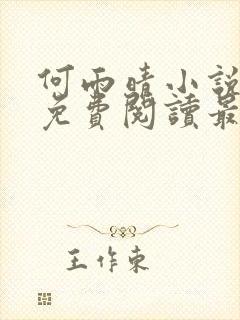 何雨晴小說
免費閱讀最
王作東